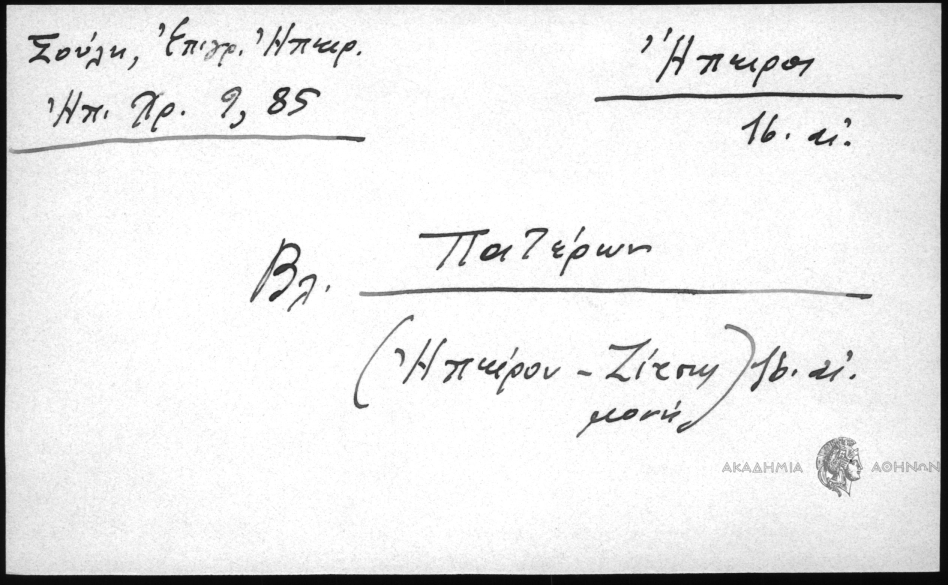 Σούλη, Ἐπιγρ. Ἠπειρ.
Ἠπ. Χρ. 9, 85
Ἤπειρος
16. αἰ.
Βλ. Πατέρων
(Ἠπείρου - Ζίτσης) 16. αἰ.
μονή
ΑΚΑΔΗΜΙΑ ΑΘΗΝΩΝ